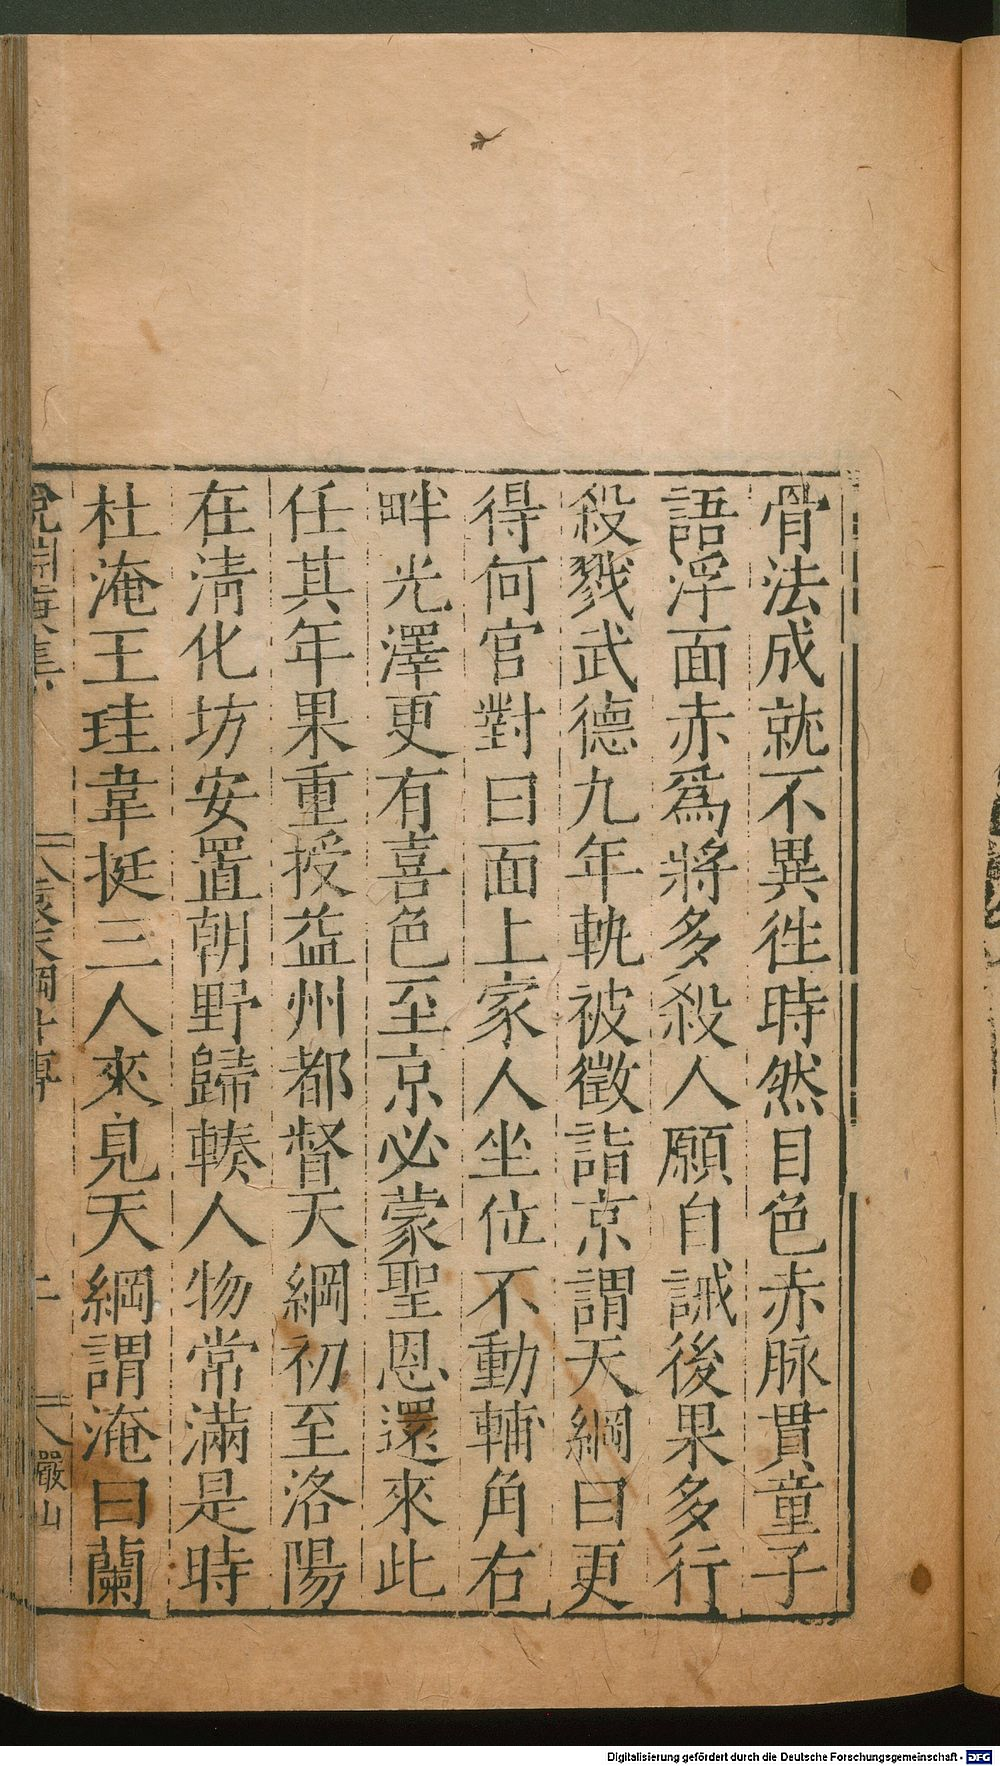 骨法成就不異徃時然目色赤脉貫童子
語浮面赤爲將多殺人願自誡後果多行
殺戮武德九年軌被徵詣京謂天綱曰更
得何官對曰面上家人坐位不動輔角右
畔光澤更有喜色至京必蒙聖恩還來此
任其年果重授益州都督天綱初至洛陽
在淸化坊安置朝野歸輳人物常滿是時
杜淹王珪韋挺三人來見天綱謂淹曰蘭
說淵廣集
袁天綱外傳
二
儼山
Digitalisierung gefördert durch die Deutsche Forschungsgemeinschaft - DFG